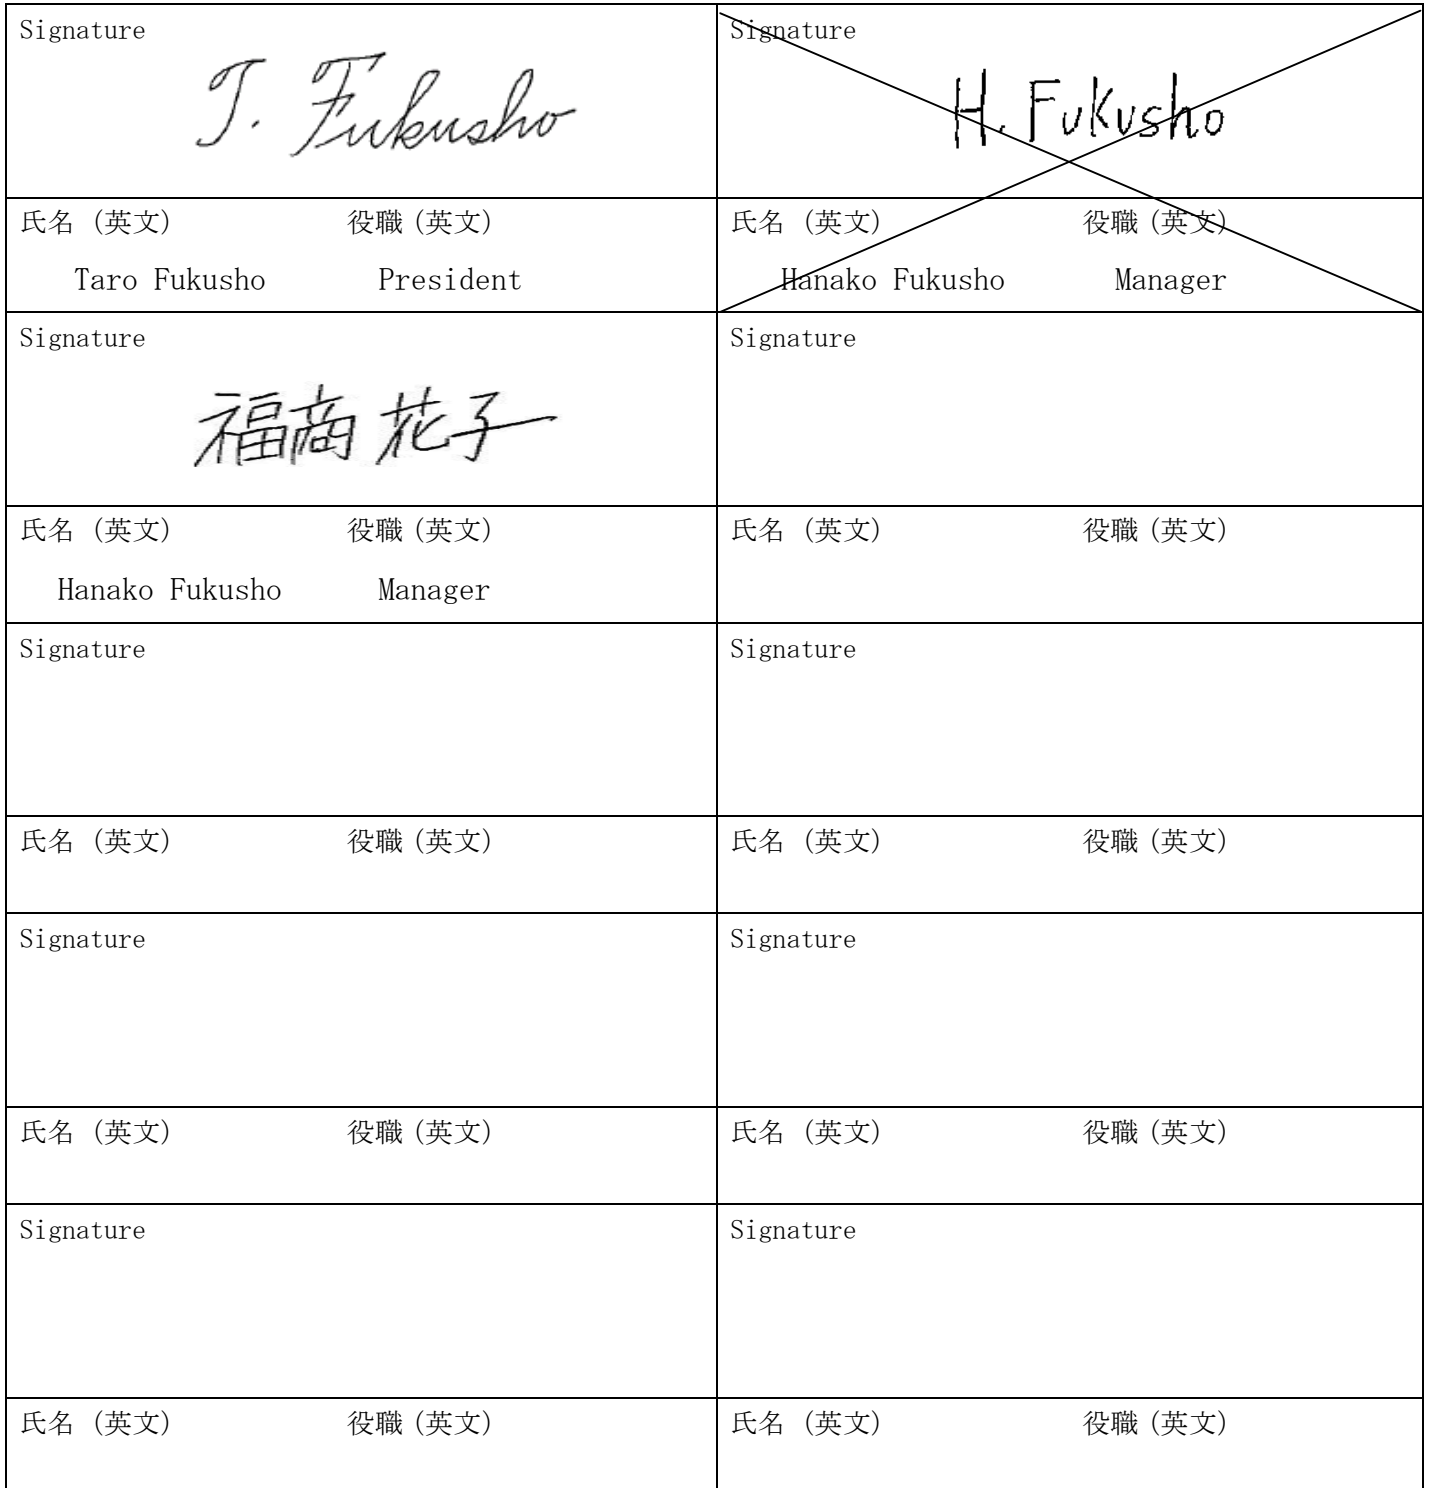 Signature
T. Fukusho
Signature
H. Fukusho
氏名 (英文) 役職 (英文)
Taro Fukusho President
氏名 (英文) 役職 (英文)
Hanako Fukusho Manager
Signature
福商 花子
Signature
氏名 (英文) 役職 (英文)
Hanako Fukusho Manager
氏名 (英文) 役職 (英文)
Signature
Signature
氏名 (英文) 役職 (英文)
氏名 (英文) 役職 (英文)
Signature
Signature
氏名 (英文) 役職 (英文)
氏名 (英文) 役職 (英文)
Signature
Signature
氏名 (英文) 役職 (英文)
氏名 (英文) 役職 (英文)